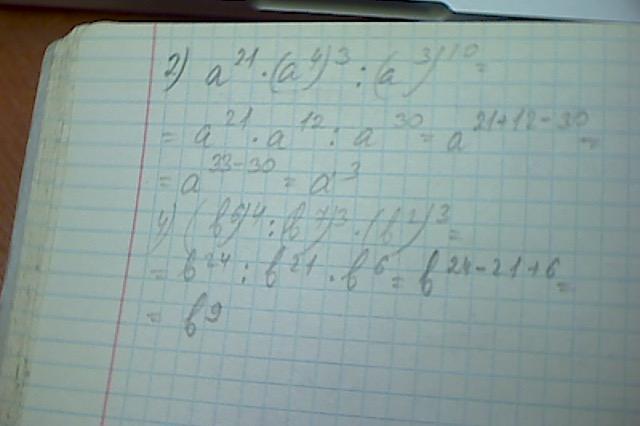 2) a²¹·(a⁴)³:(a³)¹⁰=
= a²¹·a¹²:a³⁰=a²¹⁺¹²⁻³⁰=
=a³³⁻³⁰=a³
4) (b⁶)⁴:b⁷)³·(b²)³=
= b²⁴:b²¹·b⁶=b²⁴⁻²¹⁺⁶=
= b⁹